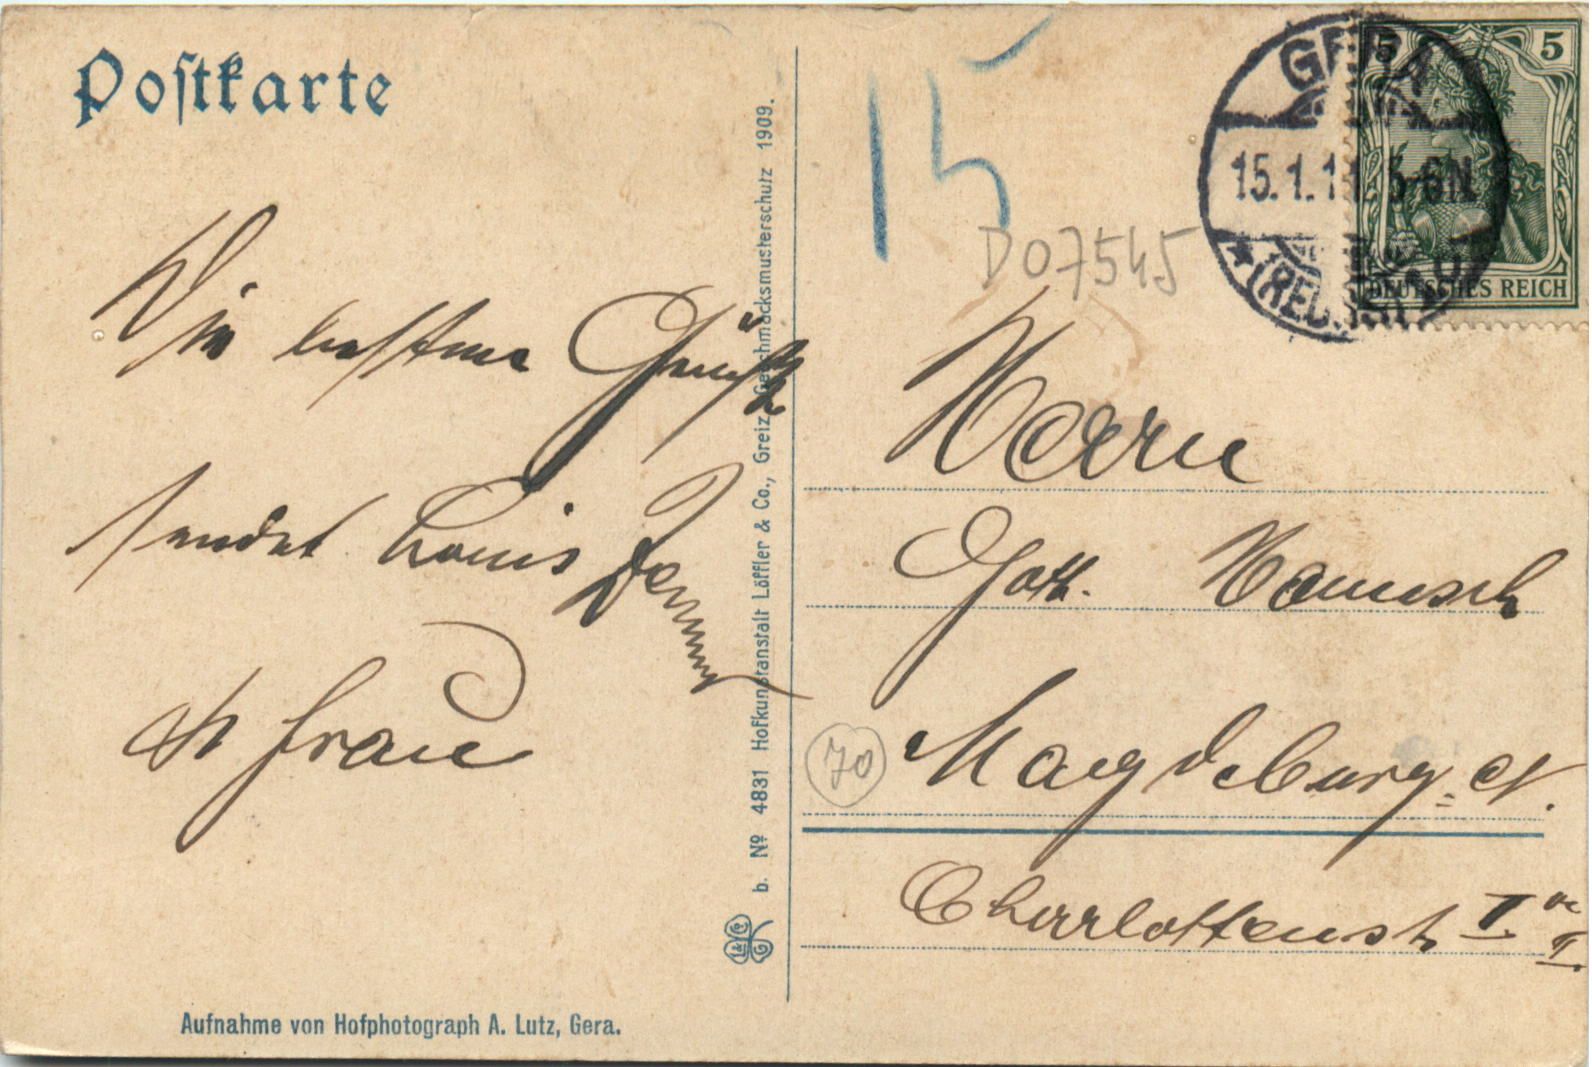 Postkarte
Die besten Grüße
sendet Louis
& Frau
Aufnahme von Hofphotograph A. Lutz, Gera.
b. № 4831 Hofkunstanstalt Löffler & Co., Greiz. Geschmacksmusterschutz 1909.
15
D07545
GERA
15.1.11. 5-6N
(REUSS)
5 5
DEUTSCHES REICH
Herrn
Goth.
70
Magdeburg-N.
Charlottenstr I